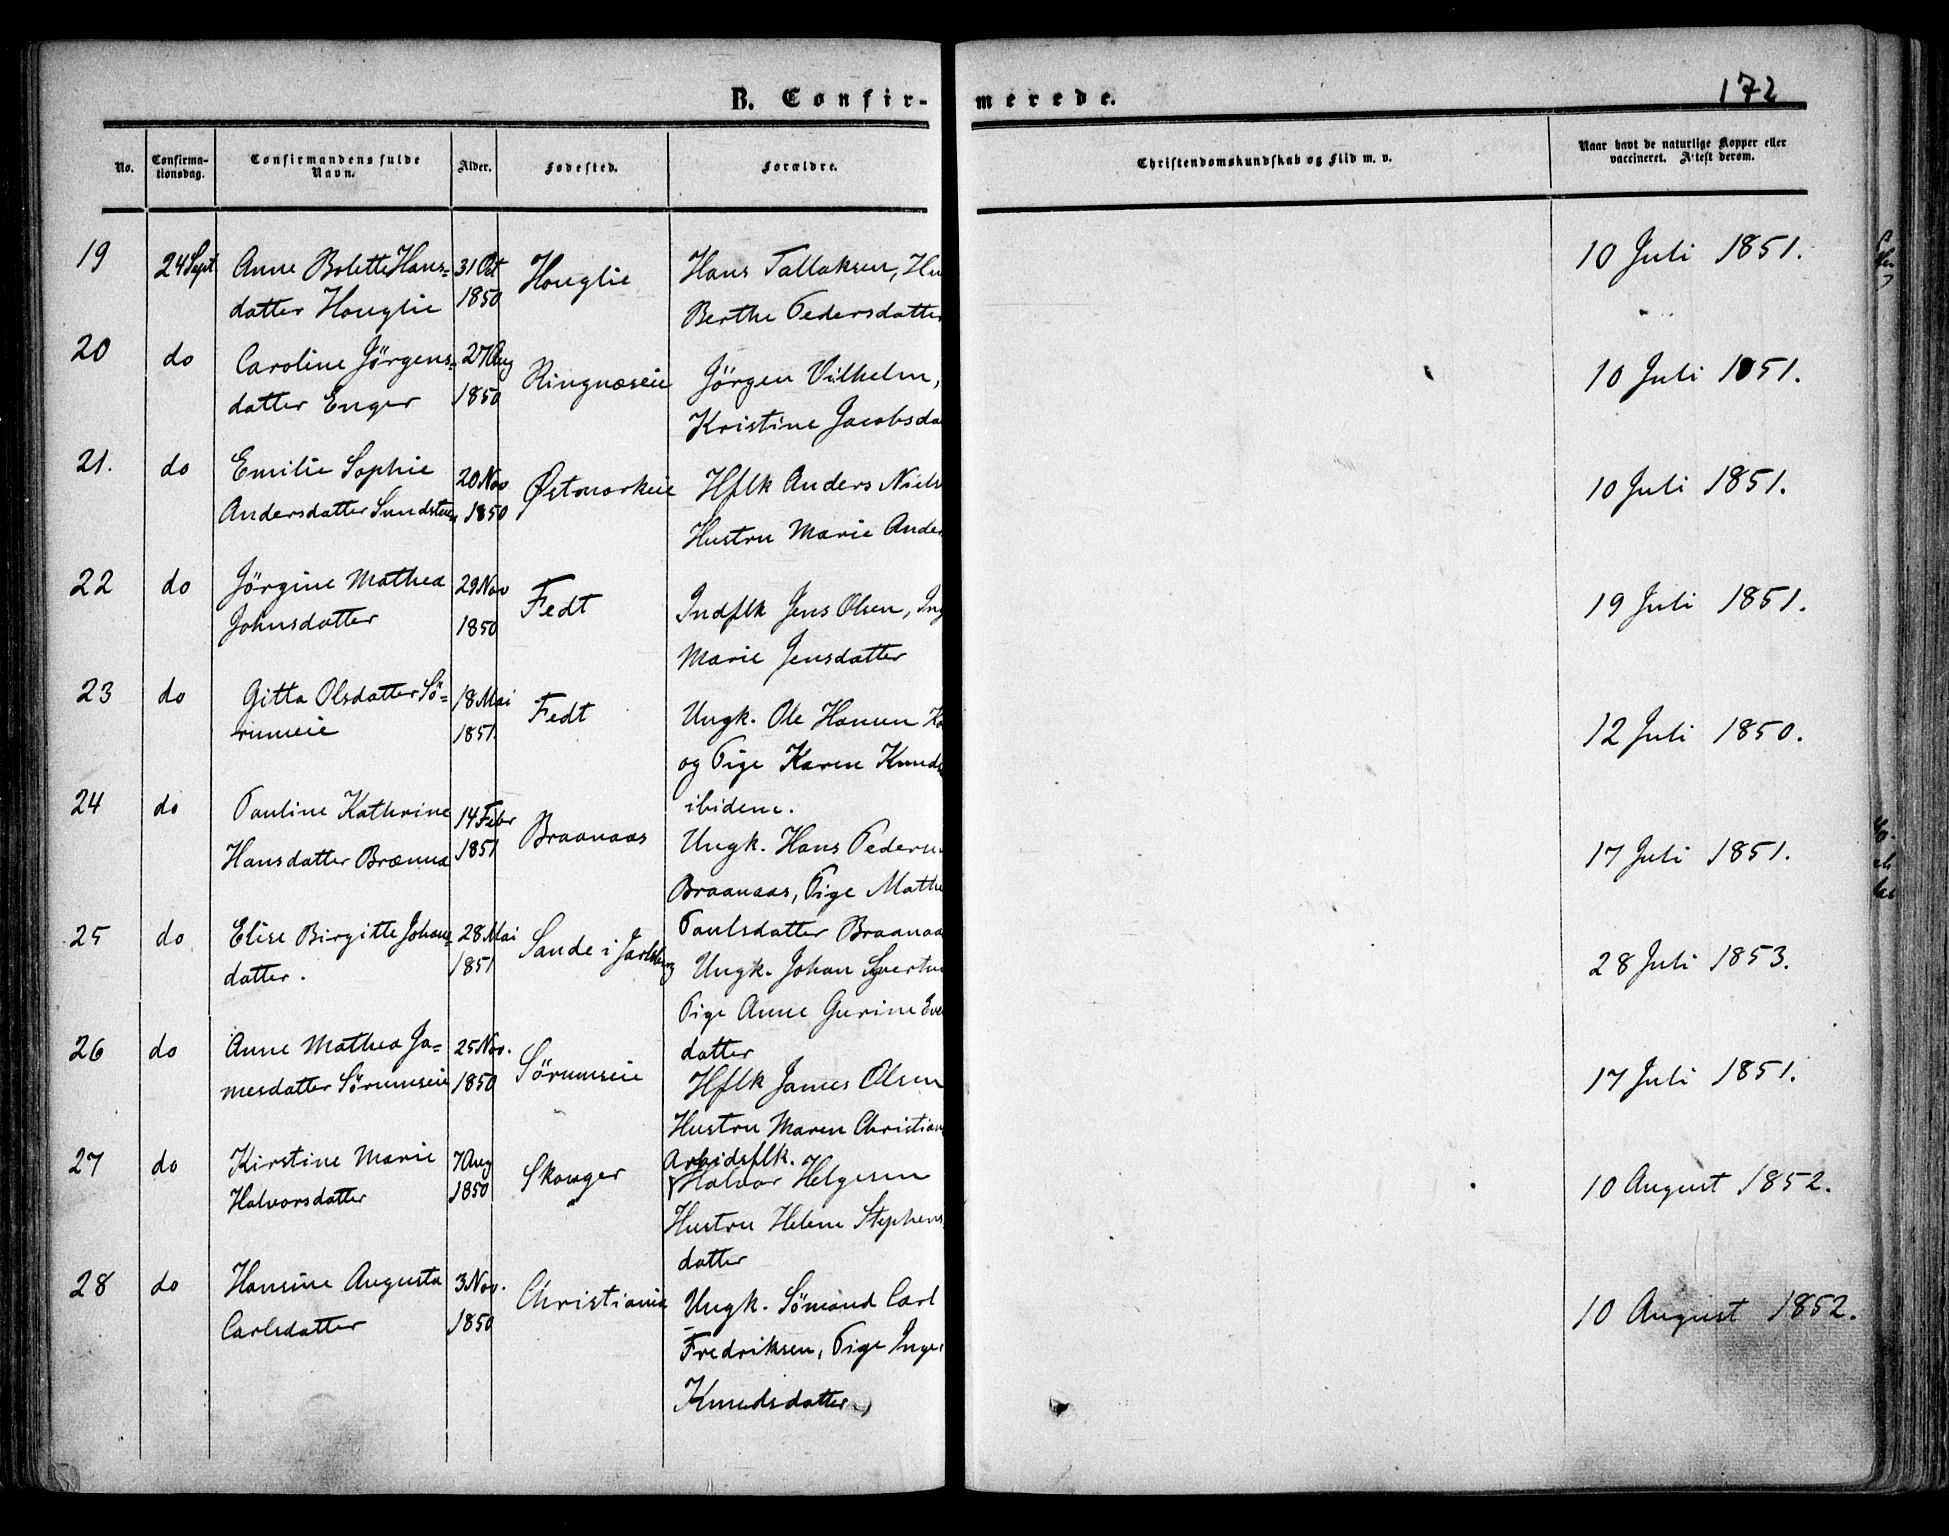 B. Confir-
merede.
172
No.
Confirma-
tionsdag.
Confirmandens fulde
Navn.
Alder.
Fødested.
Forældre.
Christendomskundskab og Flid m. v.
Naar havt de naturlige Kopper eller
vaccineret. Attest derom.
19 24 Sept Anne Bolette Hans- 31 Oct Houglie Hans Tallaksen, Hu 10 Juli 1851.
datter Houglie 1850 Berthe Pedersdatter
20 do Caroline Jørgens- 27 Aug Ringnæseie Jørgen Vilhelm, 10 Juli 1851.
datter Enger 1850 Kristine Jacobsda
21. do Emilie Sophie 20 Nov Østnorkeie Hflk Anders Niels 10 Juli 1851.
Andersdatter Sundsteen 1850 Hustru Marie Ander
22 do Jörgine Mathea 29 Nov Fedt Indflk Jens Olsen, Ing 19 Juli 1851.
Johnsdatter 1850 Marie Jensdatter
23 do Gitta Olsdatter Sö- 18 Mai Fedt Ungk. Ole Hansen 12 Juli 1850.
rumeie 1851. og Pige Karen Knuds
ibidem.
24 do Pauline Kathrine 14 Febr Braanaas Ungk. Hans Pedersen 17 Juli 1851.
Hansdatter Brænna 1851 Braanaas, Pige Mathe
Paulsdatter Braanaa
25 do Elise Birgitte Johans- 28 Mai Sande i Jarlsberg Ungk. Johan Syverts 28 Juli 1853.
datter. 1851 Pige Anne Gurine Eve
datter
26 do Anne Mathea Ja- 25 Nov. Sörumseie Hflk James Olsen 17 Juli 1851.
mesdatter Sörumseie 1850 Hustru Maren Christian
27 do Kirstine Marie 7 Aug Skouger Arbidsflk.
Halvor Helgesen 10 August 1852.
Halvorsdatter 1850 Hustru Helene Stephens
datter
28 do Hansine Augusta 3 Nov. Christiania Ungk. Sömand Carl 10 August 1852.
Carlsdatter 1850 Fredriksen, Pige Inge
Knudsdatter